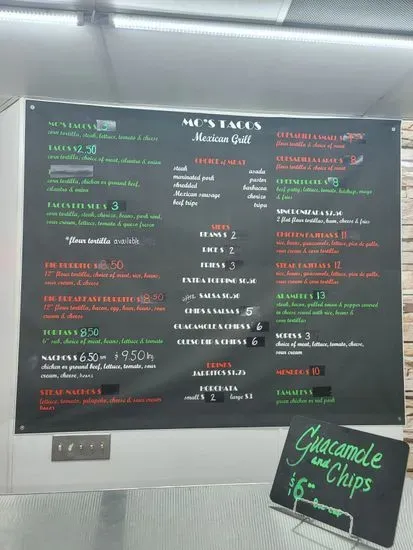 MO'S TACOS
Mexican Grill
MO'S TACOS $
corn tortilla, steak, lettuce, tomato & cheese
TACOS $2.50
corn tortilla, choice of meat, cilantro & onion
corn tortilla, chicken or ground beef,
cilantro & onion
TACOS DEL SUR $ 3
corn tortilla, steak, chorizo, beans, pork rind,
sour cream, lettuce, tomato & queso fresco
*flour tortilla available
BIG BURRITO $ 8.50
12" flour tortilla, choice of meat, rice, beans,
sour cream, cheese
BIG BREAKFAST BURRITO $ 8.50
12" flour tortilla, bacon, egg, ham, beans, sour
cream & cheese
TORTAS $ 8.50
6" sub, choice of meat, beans, lettuce & tomato
NACHOS $ 6.50 sm $ 9.50 lrg
chicken or ground beef, lettuce, tomato, sour
cream, cheese, beans
STEAK NACHOS $
lettuce, tomato, jalapeño, cheese & sour cream
beans
CHOICE of MEAT
steak asada
marinated pork pastor
shredded barbacoa
Mexican sausage chorizo
beef tripe tripa
SIDES
BEANS $ 2
RICE $ 2
FRIES $ 3
EXTRA TOPPING $0.50
SALSA $0.50
CHIPS & SALSA $ 5
GUACAMOLE & CHIPS $ 6
QUESO DIP & CHIPS $ 6
DRINKS
JARRITOS $1.75
HORCHATA
small $ 2 large $3
QUESADILLA SMALL $
flour tortilla & choice of meat
QUESADILLA LARGE $ 8
flour tortilla & choice of meat
CHEESEBURGER $ 8
beef patty, lettuce, tomato, ketchup, mayo
& fries
SINCRONIZADA $3.50
2 flat flour tortillas, ham, cheese & fries
CHICKEN FAJITAS $ 11
rice, beans, guacamole, lettuce, pico de gallo,
sour cream & corn tortillas
STEAK FAJITAS $ 12
rice, beans, guacamole, lettuce, pico de gallo,
sour cream & corn tortillas
ALAMBRE $ 13
steak, bacon, grilled onion & pepper covered
in cheese served with rice, beans &
corn tortillas
SOPES $ 3
choice of meat, lettuce, tomato, cheese,
sour cream
MENUDO $ 10
TAMALES $
green chicken or red pork
Guacamole
and
Chips
$6.00